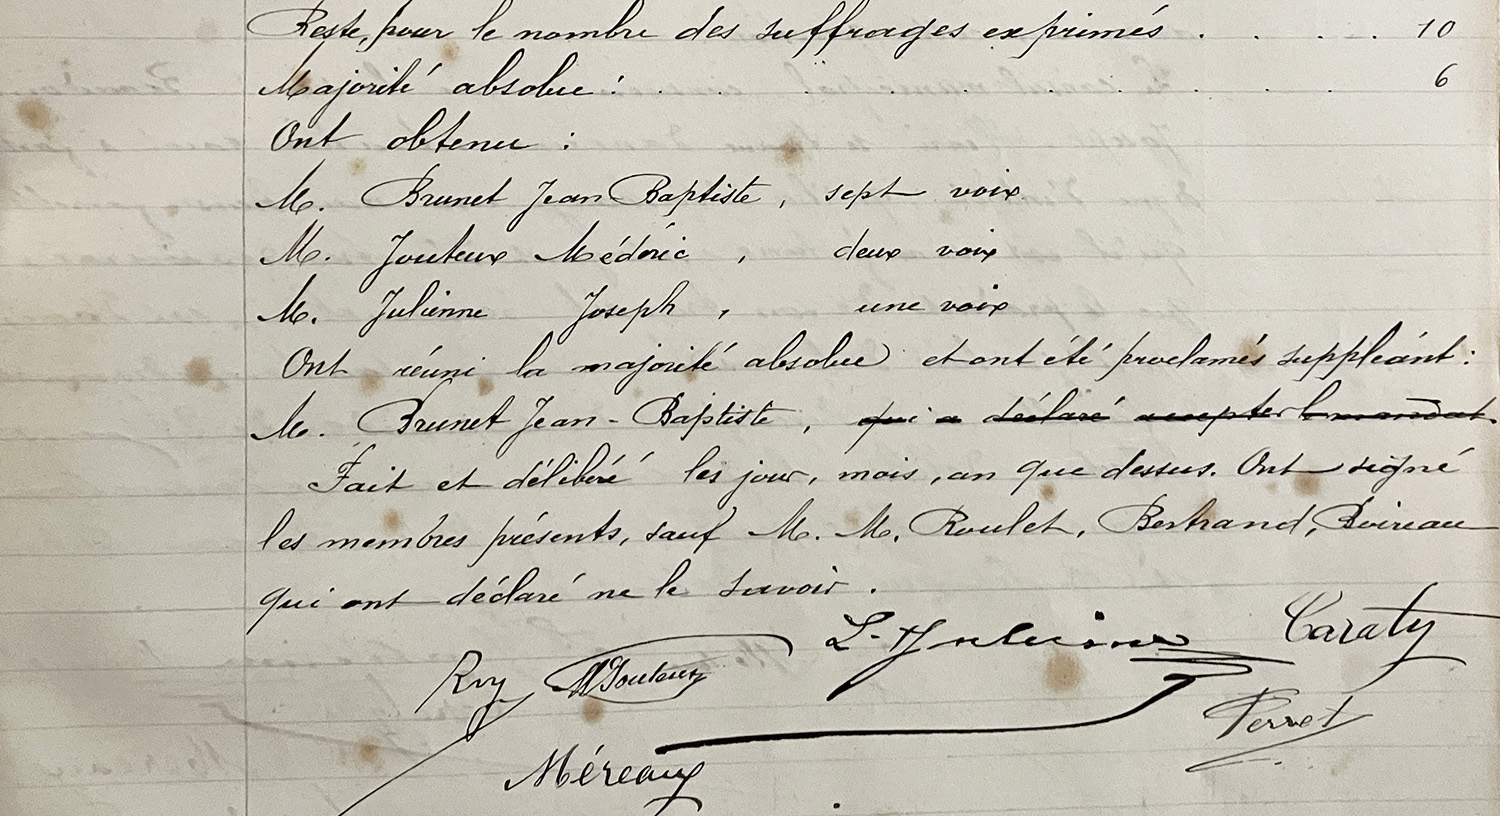 Reste, pour le nombre des suffrages exprimés . . . . . 10
Majorité absolue : . . . . . . . . 6
Ont obtenu :
M. Brunet Jean Baptiste, sept voix
M. Jouteux Médéric, deux voix
M. Julienne Joseph, une voix
Ont réuni la majorité absolue et ont été proclamés suppléant :
M. Brunet Jean-Baptiste, qui a déclaré accepter le mandat.
Fait et délibéré les jour, mois, an que dessus. Ont signé
les membres présents, sauf M. M. Roulet, Bertrand, Boireau
qui ont déclaré ne le savoir.
Roy M Jouteux Caraty
Perret
Méreaux